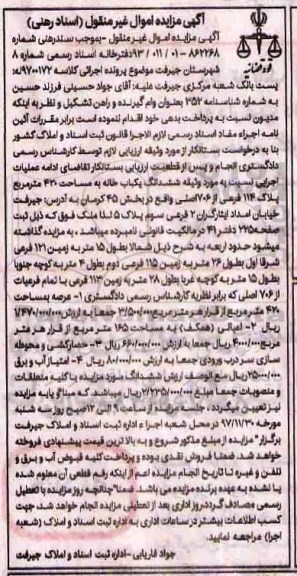 آگهی مزایده اموال غیر منقول (اسناد رهنی)
آگهی مزایده اموال غیر منقول -بموجب سندرهنی شماره
۸۶۲۲۶۸- ۰۱/ ۰۱۱/ ۹۳دفترخانه اسناد رسمی شماره ۸
شهرستان جیرفت موضوع پرونده اجرائی کلاسه ۹۷۰۰۱۷۲له:
پست بانک شعبه مرکزی جیرفت علیه: آقای جواد حسینیلی فرزند حسین
به شماره شناسنامه ۳۵۲ بعنوان وام گیرنده و راهن تشکیل و نظر به اینکه
مدیون نسبت به پرداخت بدهی خود اقدام ننموده است برابر مقررات آئین
نامه اجراء مفاد اسناد رسمی لازم الاجرا قانون ثبت اسناد و املاک کشور
بنا به درخواست بستانکار از مورد وثیقه ارزیابی لازم توسط کارشناس رسمی
دادگستری انجام و پس از قطعیت ارزیابی بستانکار تقاضای ادامه عملیات
اجرایی نسبت به مورد وثیقه ششدانگ یکباب خانه به مساحت ۴۲۰ مترمربع
پلاک ۱۱۴ فرعی از ۷۰۶اصلی واقع در بخش ۴۵ کرمان به آدرس: جیرفت
خیابان امداد ایثارگران ۲ فرعی سوم پلاک ۵ لذا ملک فوق که ذیل ثبت
صفحه۲۲۵ دفتر ۴۹ در مالکیت قانونی نامبرده میباشد ، به مزایده گذاشته
میشود حدود اربعه به شرح ذیل شمالا بطول ۱۵ متر به زمین ۱۲۱ فرعی
شرقا اول بطول ۲۶ متر به زمین ۱۱۵ فرعی دوم بطول ۴ متر به کوچه جنوبا
بطول ۱۵ متر به کوچه غربا بطول ۲۸ متر به زمین ۱۱۳ فرعی با تمام فرعیات
از ۷۰۶ اصلی که برابر نظریه کارشناس رسمی دادگستری ۱- عرصه بمساحت
۴۲۰ متر مربع از قرار هر متر مربع ۳/۵۰۰/۰۰۰ جمعا به ارزش ۱/۴۷۰/۰۰۰/۰۰۰
ریال ۲- اعیانی (همکف) به مساحت ۱۶۵ متر مربع از قرار هر متر
مربع ۴/۰۰۰/۰۰۰ ریال جمعا به ارزش ۶۶۰/۰۰۰/۰۰۰ ریال ۳- حصارکشی و محوطه
سازی سر درب ورودی جمعا به ارزش ۸۰/۰۰۰/۰۰۰ ریال ۴- امتیاز آب و برق
۲۵/۰۰۰/۰۰۰ ریال مع الوصف ارزش ششدانگ مورد مزایده با کلیه متعلقات
و منصوبات جمعا مبلغ ۲/۲۳۵/۰۰۰/۰۰۰ ریال میباشد. که مبنای پایه مزایده
نیز تعیین میگردد ، جلسه مزایده از ساعت ۹ الی ۱۲ صبح روز سه شنبه
مورخه ۹۷/۱۱/۳۰ در محل شعبه اجراء اداره ثبت اسناد و املاک جیرفت
برگزار" مزایده از مبلغ مذکور شروع و به بالاترین قیمت پیشنهادی فروخته
خواهد شد. ضمنا فروش نقدی بوده و پرداخت کلیه قبوض آب و برق و
تلفن و غیره تا تاریخ انجام مزایده اعم از اینکه رقم قطعی آن معلوم شده
یا نشده به عهده برنده مزایده می باشد. ضمنا"چنانچه روز مزایده با تعطیل
رسمی مصادف گردد،روز اداری بعد از تعطیلی مزایده انجام خواهد شد، جهت
کسب اطلاعات بیشتر در ساعات اداری به اداره ثبت اسناد و املاک (شعبه
اجرا) مراجعه نمایید.
جواد فاریابی-اداره ثبت اسناد و املاک جیرفت